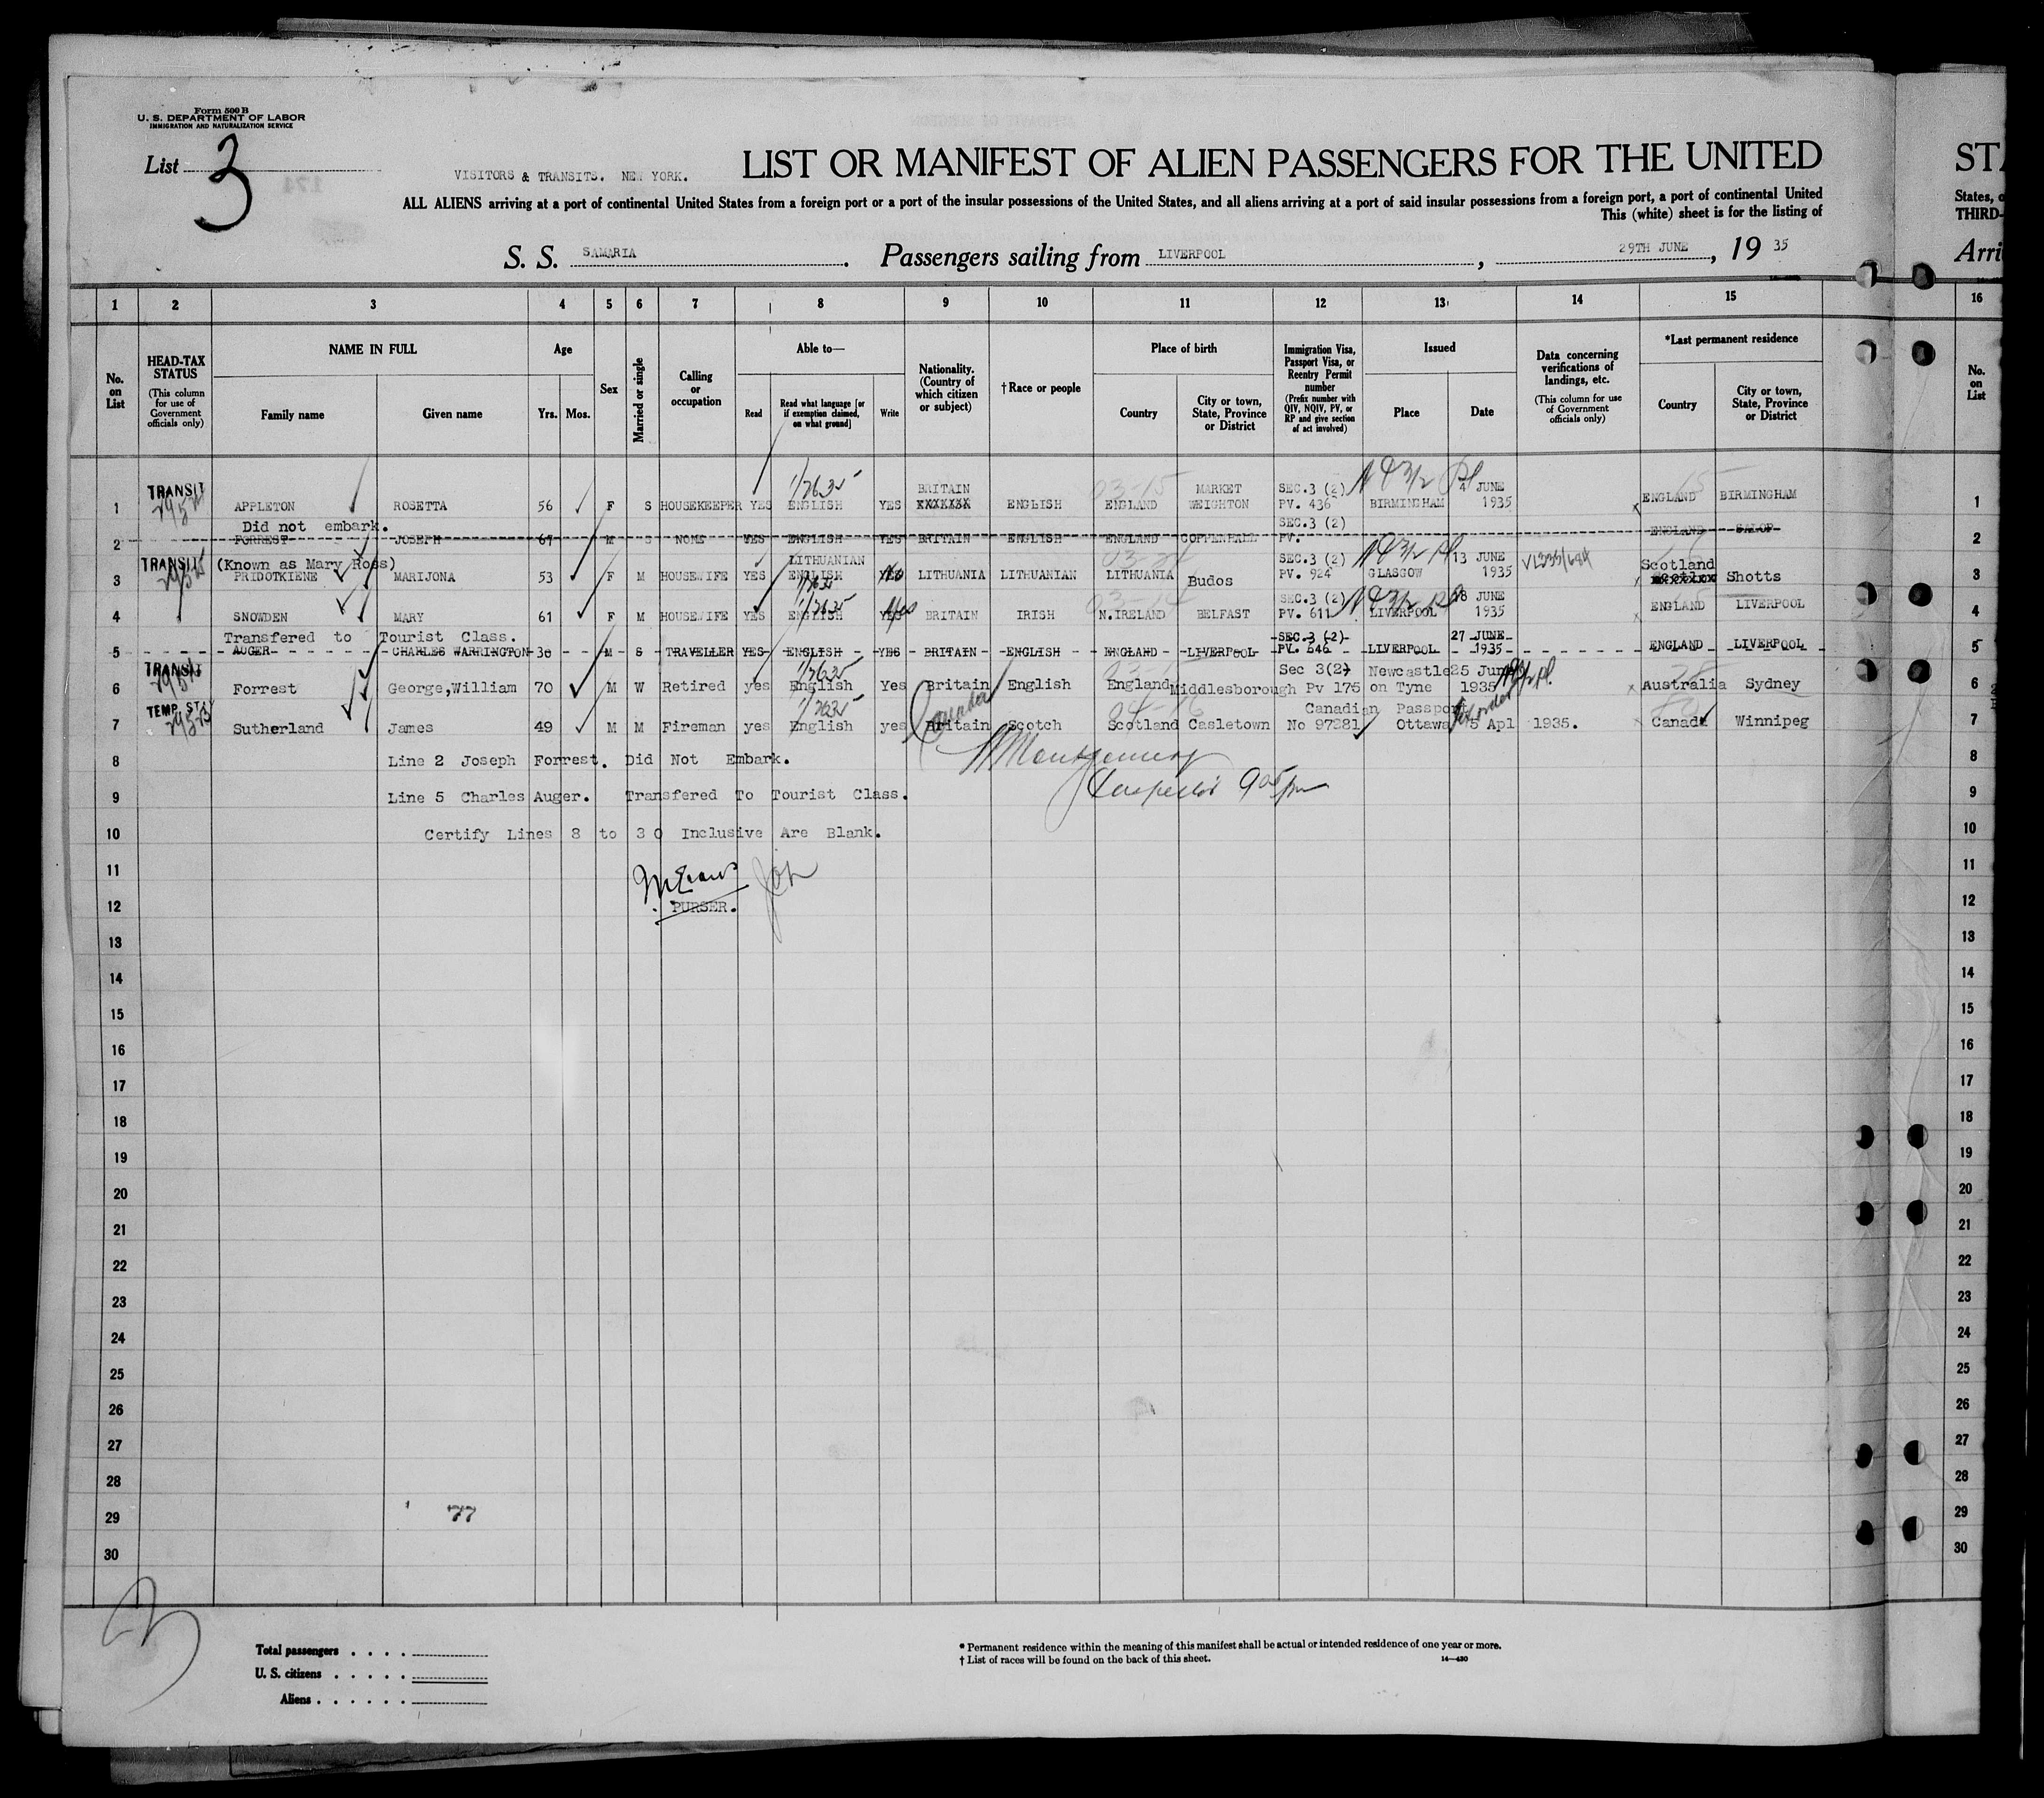 Form 500 B
U. S. DEPARTMENT OF LABOR
IMMIGRATION AND NATURALIZATION SERVICE
List 3
VISITORS & TRANSITS. NEW YORK.
LIST OR MANIFEST OF ALIEN PASSENGERS FOR THE UNITED
ALL ALIENS arriving at a port of continental United States from a foreign port or a port of the insular possessions of the United States, and all aliens arriving at a port of said insular possessions from a foreign port, a port of continental United
This (white) sheet is for the listing of
S. S. SAMARIA. Passengers sailing from LIVERPOOL, 29TH JUNE, 19 35
STA
States, o
THIRD-
Arri
1 2 3 4 5 6 7 8 9 10 11 12 13 14 15 16
No. on List
HEAD-TAX STATUS
(This column for use of Government officials only)
NAME IN FULL
Family name
Given name
Age
Yrs. Mos.
Sex
Married or single
Calling or occupation
Able to—
Read
Read what language [or if exemption claimed, on what ground]
Write
Nationality. (Country of which citizen or subject)
† Race or people
Place of birth
Country
City or town, State, Province or District
Immigration Visa, Passport Visa, or Reentry Permit number
(Prefix number with QIV, NQIV, PV, or RP and give section of act involved)
Issued
Place
Date
Data concerning verifications of landings, etc.
(This column for use of Government officials only)
*Last permanent residence
Country
City or town, State, Province or District
No. on List
TRANSIT BRITAIN 03-15 MARKET SEC.3 (2) 4 JUNE 15
1 APPLETON ROSETTA 56 F S HOUSEKEEPER YES ENGLISH YES XXXXXXX ENGLISH ENGLAND WEIGHTON PV. 436 BIRMINGHAM 1935 ENGLAND BIRMINGHAM 1
Did not embark. SEC.3 (2)
2 FORREST JOSEPH 67 M S NONE YES ENGLISH YES BRITAIN ENGLISH ENGLAND COPPENHALL PV. ENGLAND SALOP 2
TRANSIT (Known as Mary Ross) LITHUANIAN SEC.3 (2) 13 JUNE Scotland
3 PRIDOTKIENE MARIJONA 53 F M HOUSEWIFE YES ENGLISH LITHUANIA LITHUANIAN LITHUANIA Budos PV. 924 GLASGOW 1935 Shotts 3
SEC.3 (2) 18 JUNE
4 SNOWDEN MARY 61 F M HOUSEWIFE YES ENGLISH YES BRITAIN IRISH N.IRELAND BELFAST PV. 611 LIVERPOOL 1935 ENGLAND LIVERPOOL 4
Transfered to Tourist Class. SEC.3 (2) 27 JUNE
5 AUGER CHARLES WARRINGTON 30 M S TRAVELLER YES ENGLISH YES BRITAIN ENGLISH ENGLAND LIVERPOOL PV. 646 LIVERPOOL 1935 ENGLAND LIVERPOOL 5
TRANSIT Sec 3(2) Newcastle 25 June
6 Forrest George,William 70 M W Retired yes English Yes Britain English England Middlesborough Pv 175 on Tyne 1935 Australia Sydney 6
TEMP STAY Canadian Passport
7 Sutherland James 49 M M Fireman yes English yes Britain Scotch Scotland Casletown No 97281 Ottawa 15 Apl 1935. Canada Winnipeg 7
8 Line 2 Joseph Forrest. Did Not Embark. Montgomery 8
9 Line 5 Charles Auger. Transfered To Tourist Class. Inspector 9 05 pm 9
10 Certify Lines 8 to 30 Inclusive Are Blank. 10
11 11
12 PURSER. 12
13 13
14 14
15 15
16 16
17 17
18 18
19 19
20 20
21 21
22 22
23 23
24 24
25 25
26 26
27 27
28 28
29 77 29
30 30
Total passengers . . . .
U. S. citizens . . . . .
Aliens . . . . . .
* Permanent residence within the meaning of this manifest shall be actual or intended residence of one year or more.
† List of races will be found on the back of this sheet.
14—430